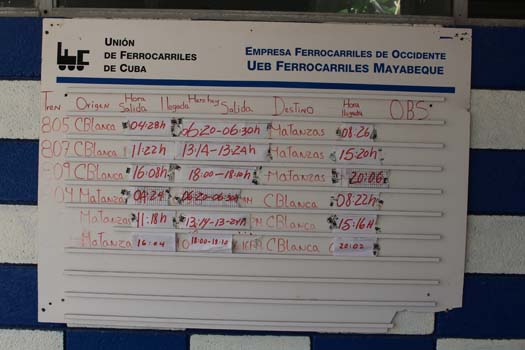 UNIÓN
DE FERROCARRILES
DE CUBA
EMPRESA FERROCARRILES DE OCCIDENTE
UEB FERROCARRILES MAYABEQUE
Tren Origen Hora Salida Hora hay llegada Salida Destino Hora llegada OBS
805 CBlanca 04:28h 06:20-06:30h Matanzas 08:26
807 CBlanca 11:22h 13:14-13:24h Matanzas 15:20h
809 CBlanca 16:08h 18:00-18:10h Matanzas 20:06
Matanzas 04:24 06:20-06:30h CBlanca 08:22h
Matanzas 11:18h 13:14-13:24h CBlanca 15:16H
Matanza 16:04 18:00-18:10 CBlanca 20:02